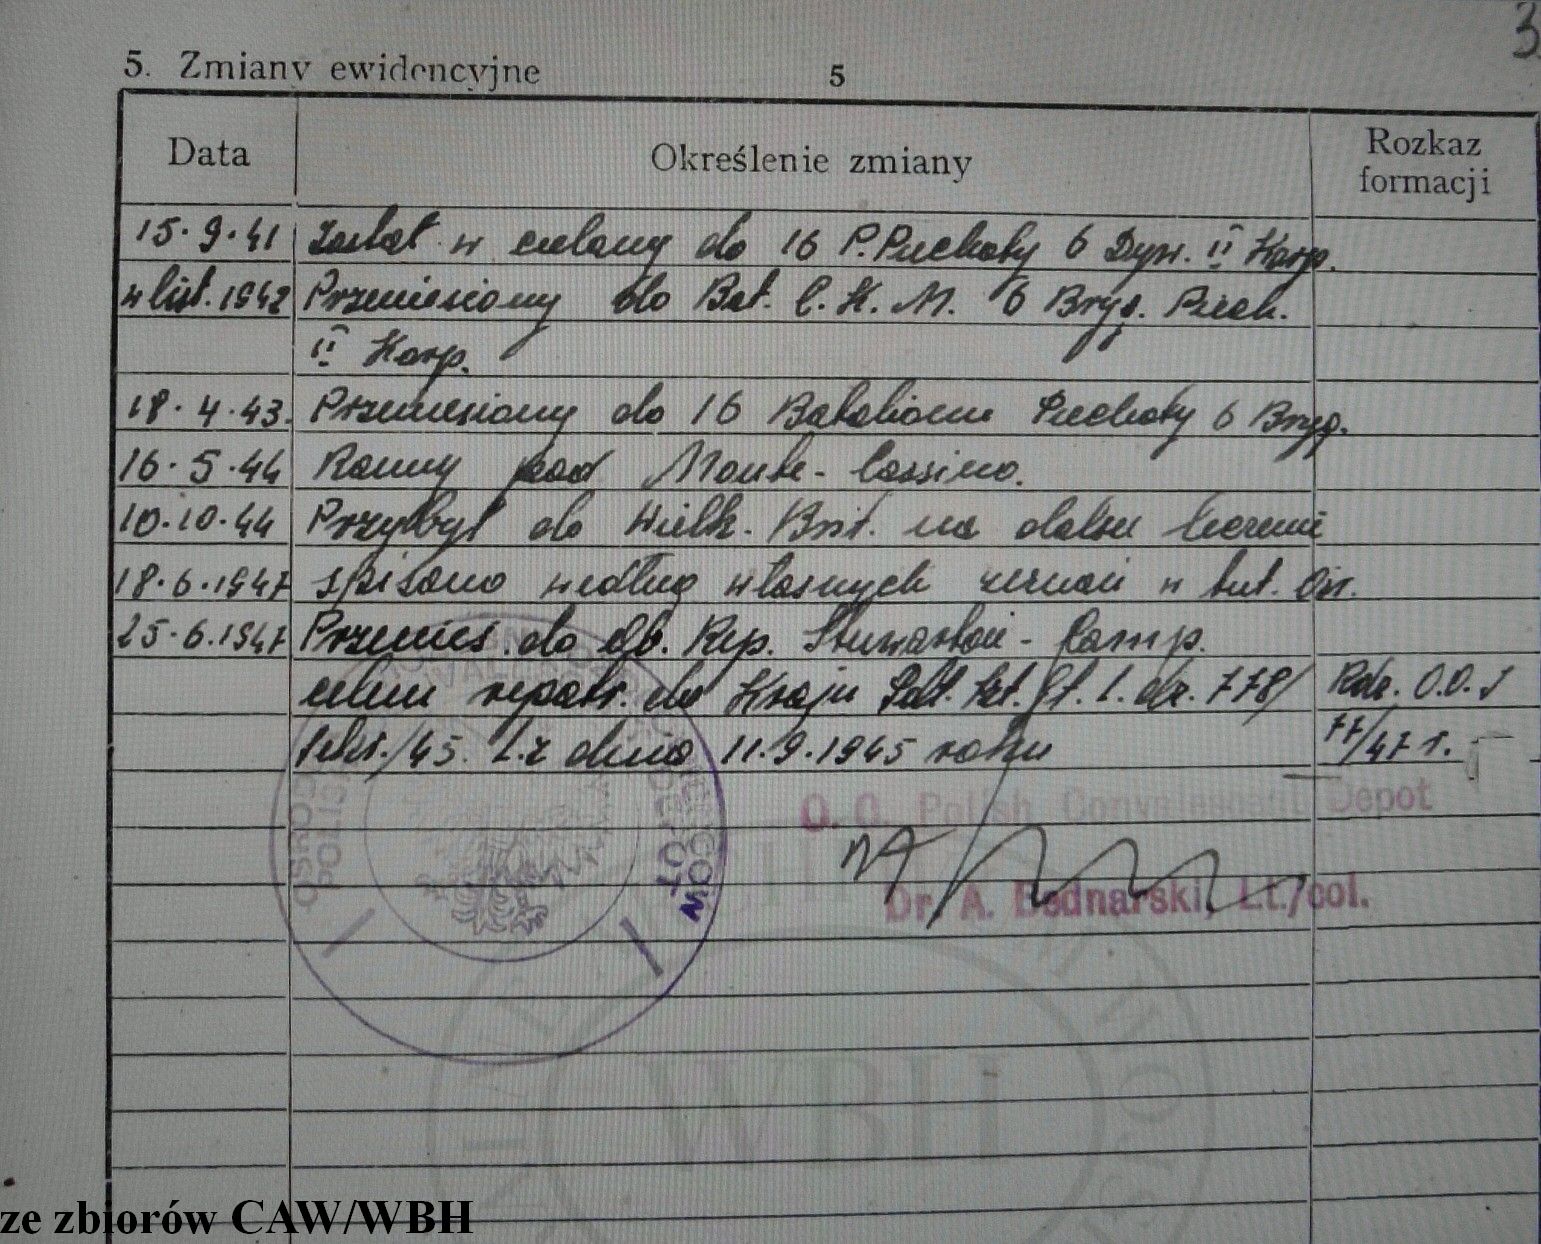 3
5. Zmiany ewidencyjne 5
Data Określenie zmiany Rozkaz formacji
15.9.41 Został w cielony do 16 P. Piechoty 6 Dyw. II Korp.
w list. 1942 Przeniesiony do Bat. C.K.M. 6 Bryg. Piech.
II Korp.
18.4.43. Przeniesiony do 16 Batalionu Piechoty 6 Bryg.
16.5.44 Ranny pod Monte-Cassino.
10.10.44 Przybył do Wielk. Bryt. na dalsze leczenie
18.6.1947 spisano według własnych zeznań w tut.
25.6.1947 Przenies. do Ob. Rep. Camp.
celem repatr. do Kraju L. dz. 778/ Rozk. O.O.
/45. z dnia 11.9.1945 roku 77/47 r.
O. C. Polish Convalescent Depot
Dr. A. Bednarski, Lt./col.
WBH
ze zbiorów CAW/WBH